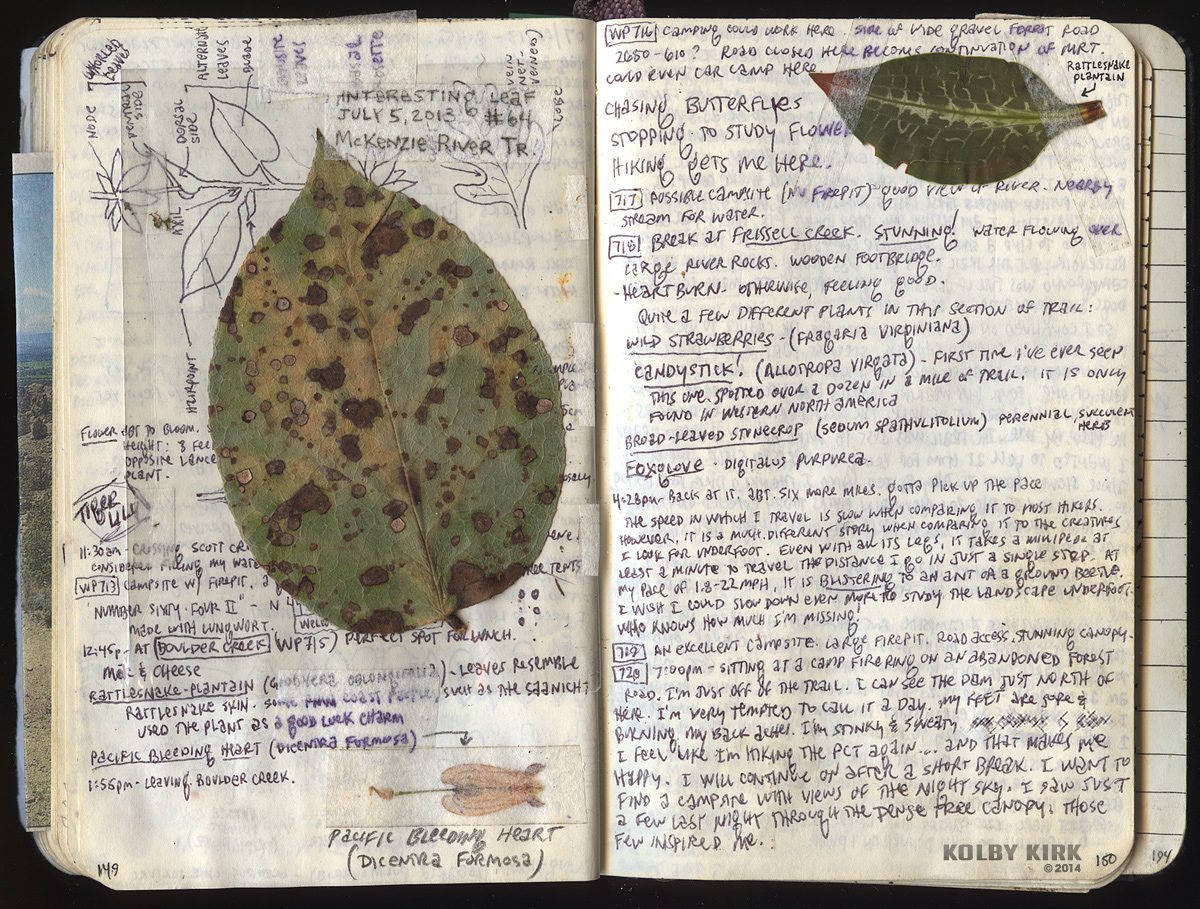 UNLOBED LEAVES
NODE
VENTRAL SIDE
DORSAL SIDE
ALTERNATE LEAVES
BLADE
OPPOSITE LEAVES
BASAL ROSETTE
VEIN (NET-VEINED)
LOBE
AXIL
HAIRPOINT
INTERESTING LEAF
JULY 5, 2013 #64
McKENZIE RIVER TR.
FLOWER ABT TO BLOOM. S
HEIGHT: 3 FEE
OPPOSITE LANCE
PLANT.
TIGER LILY
11:30am - CROSSING SCOTT CR
CONSIDERED FILLING MY WATE
WP713 CAMPSITE W/ FIREPIT, a
TREE TENTS
"NUMBER SIXTY-FOUR II" - N
MADE WITH LUNGWORT.
12:45p - AT BOULDER CREEK (WP715) PERFECT SPOT FOR LUNCH.
MAC & CHEESE
RATTLESNAKE-PLANTAIN (GOODYERA OBLONGIFOLIA) - LEAVES RESEMBLE
RATTLESNAKE SKIN. SOME COAST PEOPLE, SUCH AS THE SAANICH
USED THE PLANT AS A GOOD LUCK CHARM
PACIFIC BLEEDING HEART (DICENTRA FORMOSA)
1:55pm - LEAVING BOULDER CREEK.
PACIFIC BLEEDING HEART
(DICENTRA FORMOSA)
149
WP716 CAMPING COULD WORK HERE. SIDE OF WIDE GRAVEL FOREST ROAD
2650-610? ROAD CLOSED HERE BECOME CONTINUATION OF MRT.
COULD EVEN CAR CAMP HERE
RATTLESNAKE
PLANTAIN
CHASING BUTTERFLIES
STOPPING TO STUDY FLOWE
HIKING GETS ME HERE.
717 POSSIBLE CAMPSITE (NO FIREPIT) - GOOD VIEW OF RIVER. NEARBY
STREAM FOR WATER.
718 BREAK AT FRISSELL CREEK. STUNNING! WATER FLOWING OVER
LARGE RIVER ROCKS. WOODEN FOOTBRIDGE.
- HEARTBURN. OTHERWISE, FEELING GOOD.
QUITE A FEW DIFFERENT PLANTS IN THIS SECTION OF TRAIL:
WILD STRAWBERRIES - (FRAGARIA VIRGINIANA)
CANDYSTICK! (ALLOTROPA VIRGATA) - FIRST TIME I'VE EVER SEEN
THIS ONE. SPOTTED OVER A DOZEN IN A MILE OF TRAIL. IT IS ONLY
FOUND IN WESTERN NORTH AMERICA
BROAD-LEAVED STONECROP (SEDUM SPATHULIFOLIUM) PERENNIAL, SUCCULENT HERB
FOXGLOVE - DIGITALUS PURPUREA.
4:28pm - BACK AT IT. ABT. SIX MORE MILES. GOTTA PICK UP THE PACE
THE SPEED IN WHICH I TRAVEL IS SLOW WHEN COMPARING IT TO MOST HIKERS.
HOWEVER, IT IS A MUCH DIFFERENT STORY WHEN COMPARING IT TO THE CREATURES
I LOOK FOR UNDERFOOT. EVEN WITH ALL ITS LEGS, IT TAKES A MILLIPEDE AT
LEAST A MINUTE TO TRAVEL THE DISTANCE I GO IN JUST A SINGLE STEP. AT
MY PACE OF 1.8-2.2 MPH, IT IS BLISTERING TO AN ANT OR A GROUND BEETLE.
I WISH I COULD SLOW DOWN EVEN MORE TO STUDY THE LANDSCAPE UNDERFOOT.
WHO KNOWS HOW MUCH I'M MISSING.
719 AN EXCELLENT CAMPSITE. LARGE FIREPIT. ROAD ACCESS. STUNNING CANOPY.
720 7:00pm - SITTING AT A CAMP FIRE RING ON AN ABANDONED FOREST
ROAD. I'M JUST OFF OF THE TRAIL. I CAN SEE THE DAM JUST NORTH OF
HERE. I'M VERY TEMPTED TO CALL IT A DAY. MY FEET ARE SORE &
BURNING. MY BACK ACHES. I'M STINKY & SWEATY
I FEEL LIKE I'M HIKING THE PCT AGAIN... AND THAT MAKES ME
HAPPY. I WILL CONTINUE ON AFTER A SHORT BREAK. I WANT TO
FIND A CAMPSITE WITH VIEWS OF THE NIGHT SKY. I SAW JUST
A FEW LAST NIGHT THROUGH THE DENSE TREE CANOPY. THOSE
FEW INSPIRED ME.
KOLBY KIRK
©2014
150
194